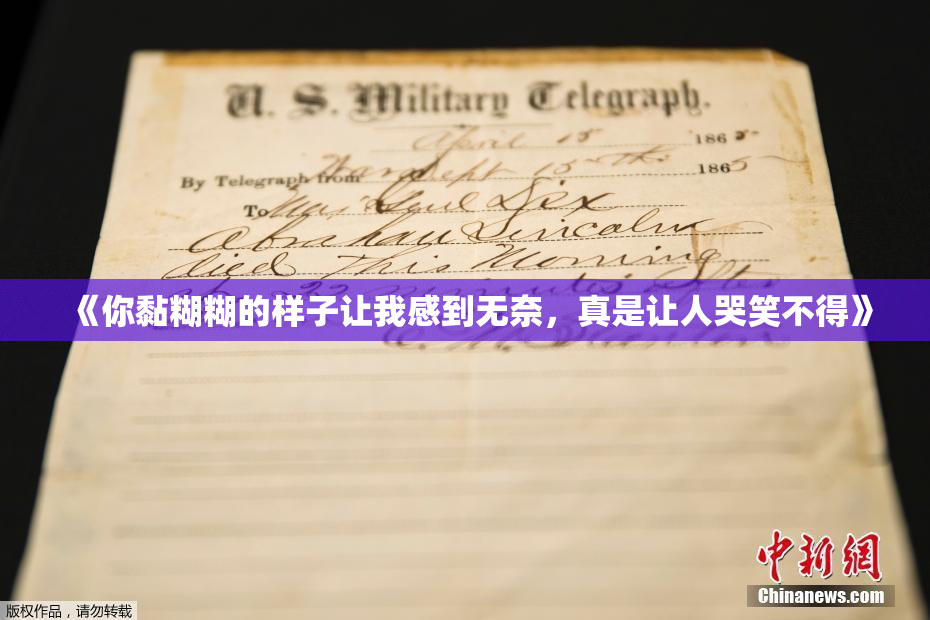 U. S. Military Telegraph.
April 15 1865
By Telegraph from War Dept 15th 1865
To Maj Genl Dix
Abraham Lincoln
died This Morning
22 minutes after
《你黏糊糊的样子让我感到无奈，真是让人哭笑不得》
E. M. Stanton
中新网
Chinanews.com
版权作品，请勿转载